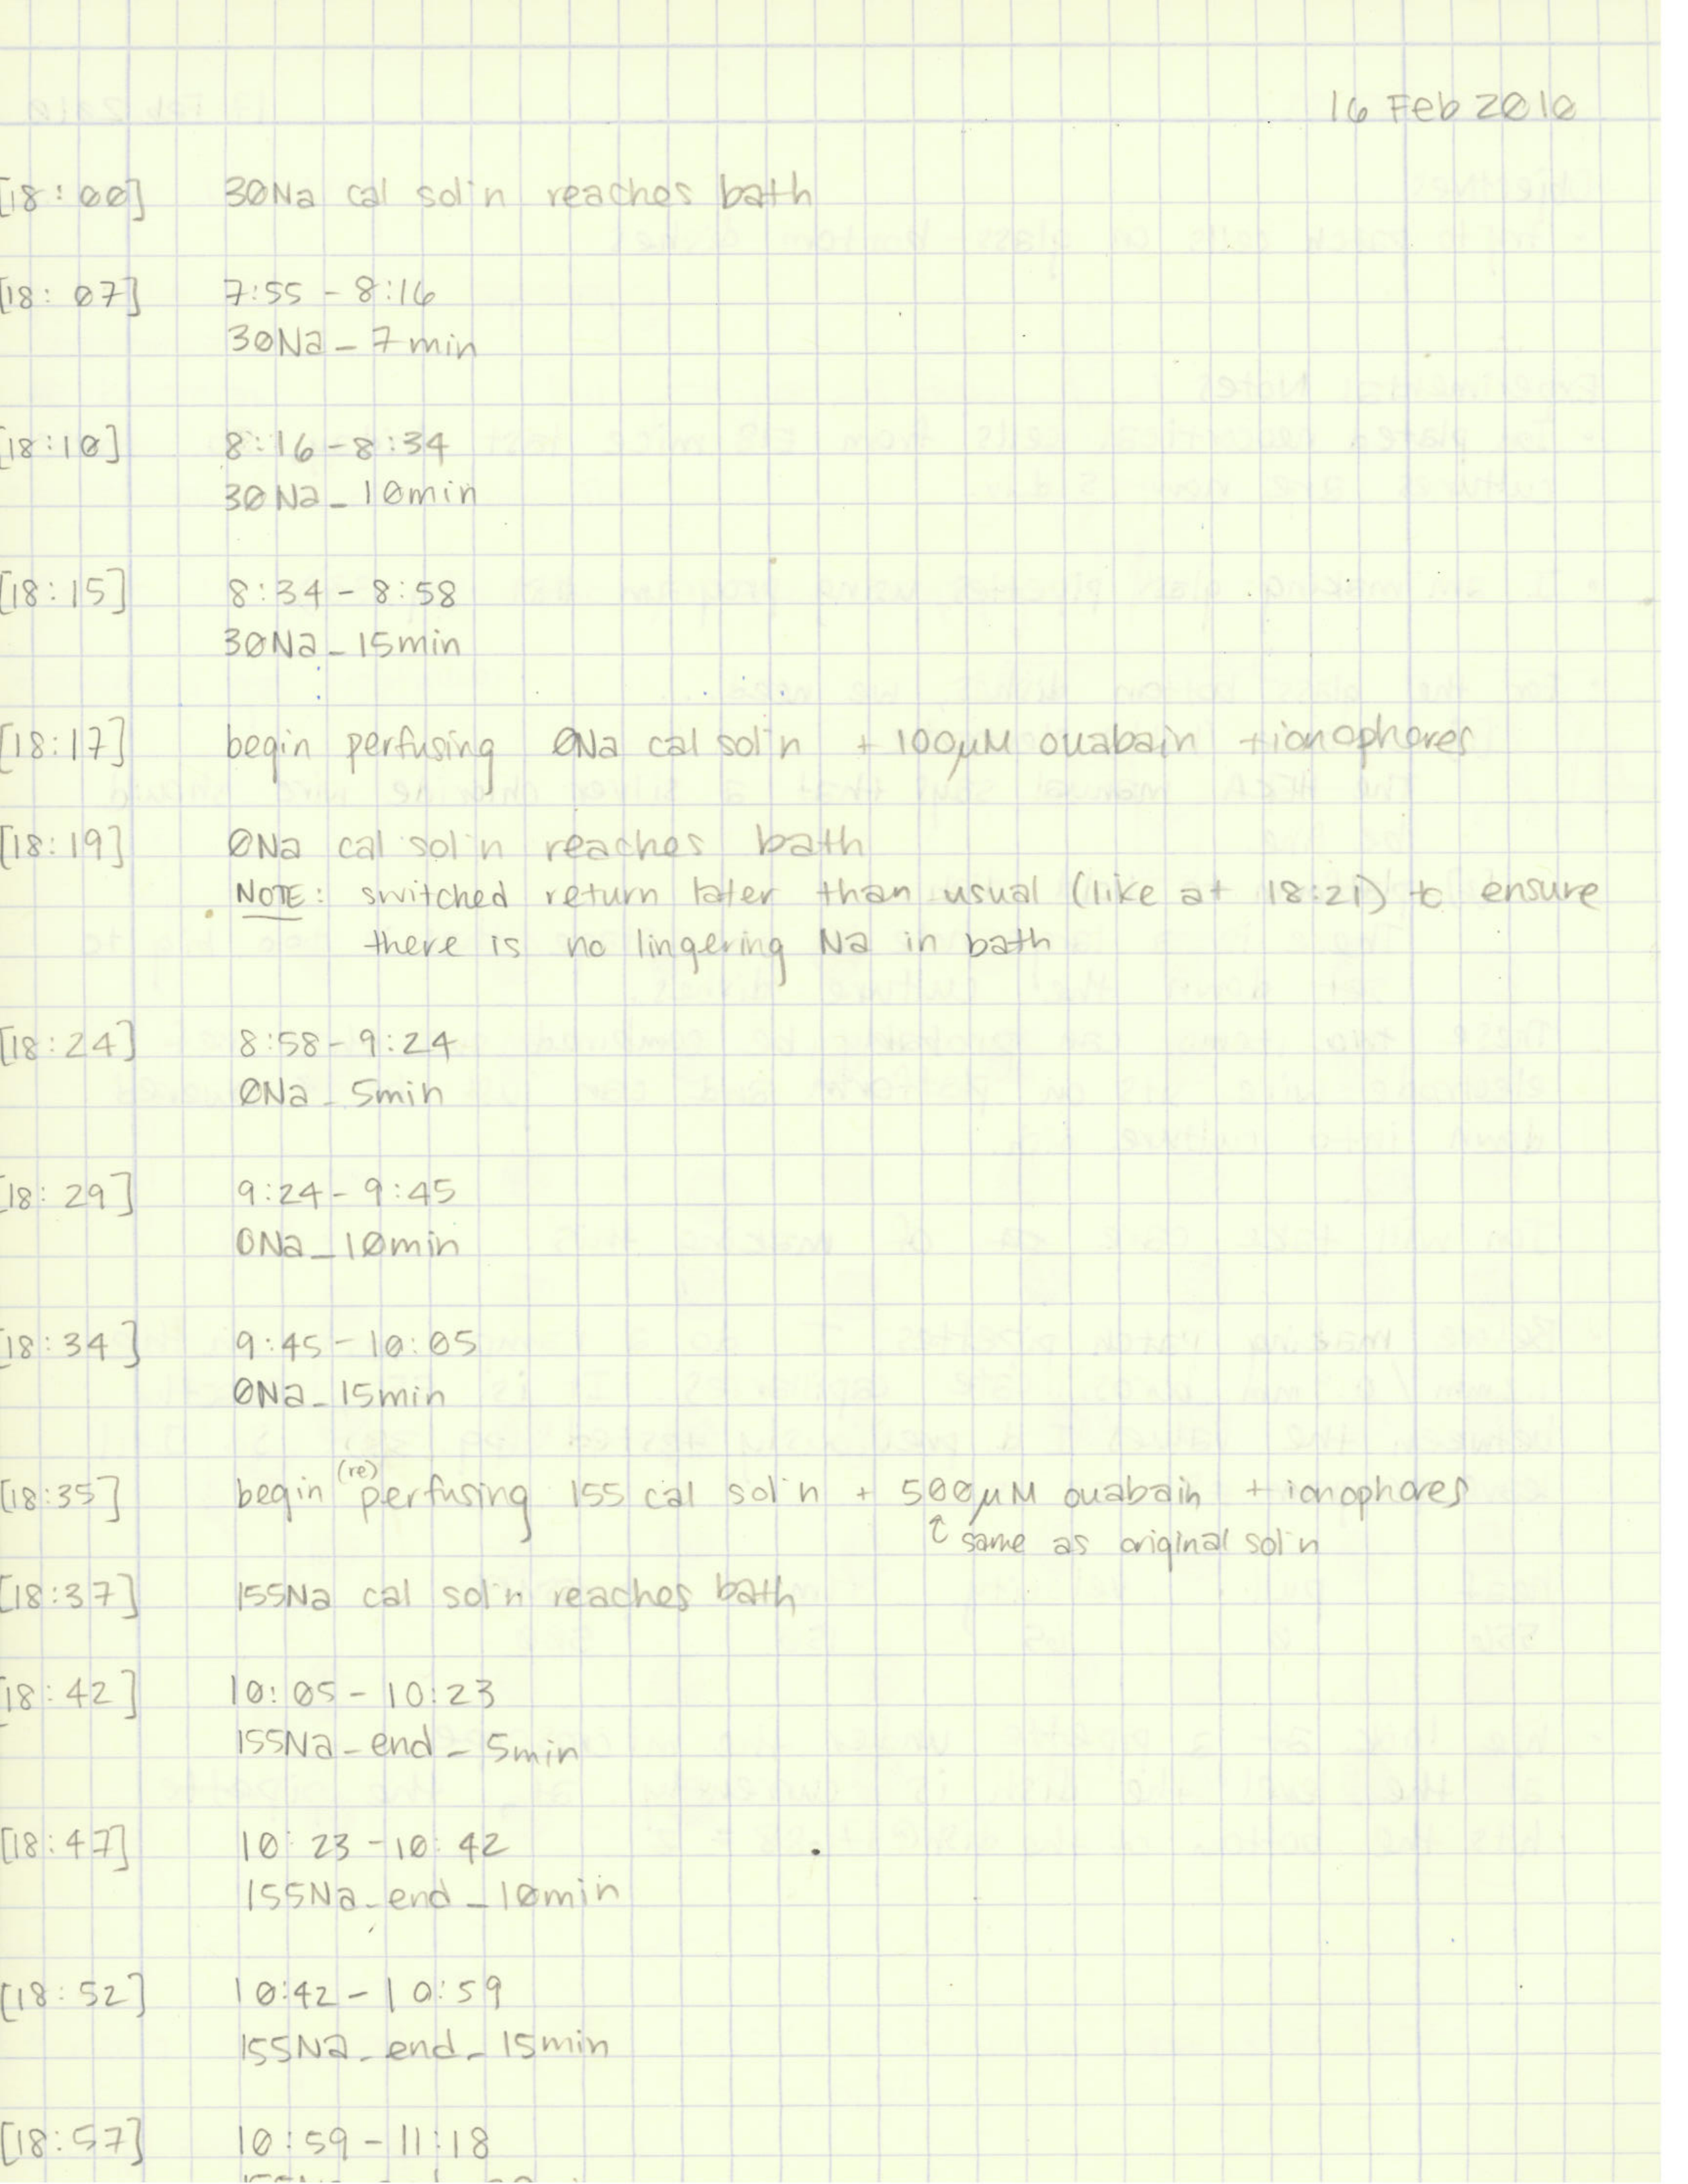 16 Feb 2010
[18:00] 30Na cal sol'n reaches bath
[18:07] 7:55 - 8:16
30Na_7min
[18:10] 8:16 - 8:34
30Na_10min
[18:15] 8:34 - 8:58
30Na_15min
[18:17] begin perfusing 0Na cal sol'n + 100µM ouabain + ionophores
[18:19] 0Na cal sol'n reaches bath
NOTE: switched return later than usual (like at 18:21) to ensure
there is no lingering Na in bath
[18:24] 8:58 - 9:24
0Na_5min
[18:29] 9:24 - 9:45
0Na_10min
[18:34] 9:45 - 10:05
0Na_15min
(re)
[18:35] begin perfusing 155 cal sol'n + 500µM ouabain + ionophores
↑ same as original sol'n
[18:37] 155Na cal sol'n reaches bath
[18:42] 10:05 - 10:23
155Na_end_5min
[18:47] 10:23 - 10:42
155Na_end_10min
[18:52] 10:42 - 10:59
155Na_end_15min
[18:57] 10:59 - 11:18